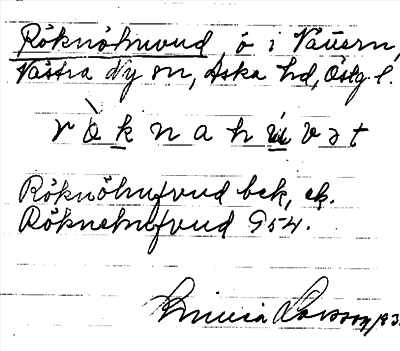 Röknöhuvud, ö i Vättern,
Västra Ny sn, Aska hd, Östg l.
r ö k n a h ú v ə t
Röknöhufvud bek, ek.
Röknehufvud G 54.
Larsson